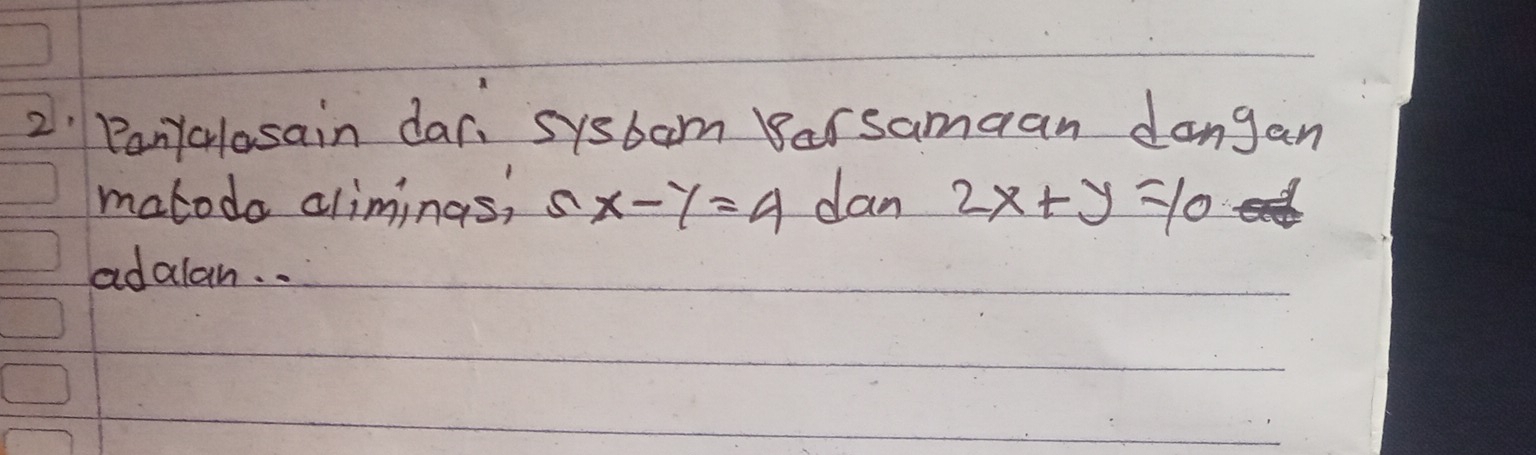 2. Panyalasain dari systam Parsamaan dangan
matoda aliminasi 5x-y=4 dan 2x+y=10
adalan...